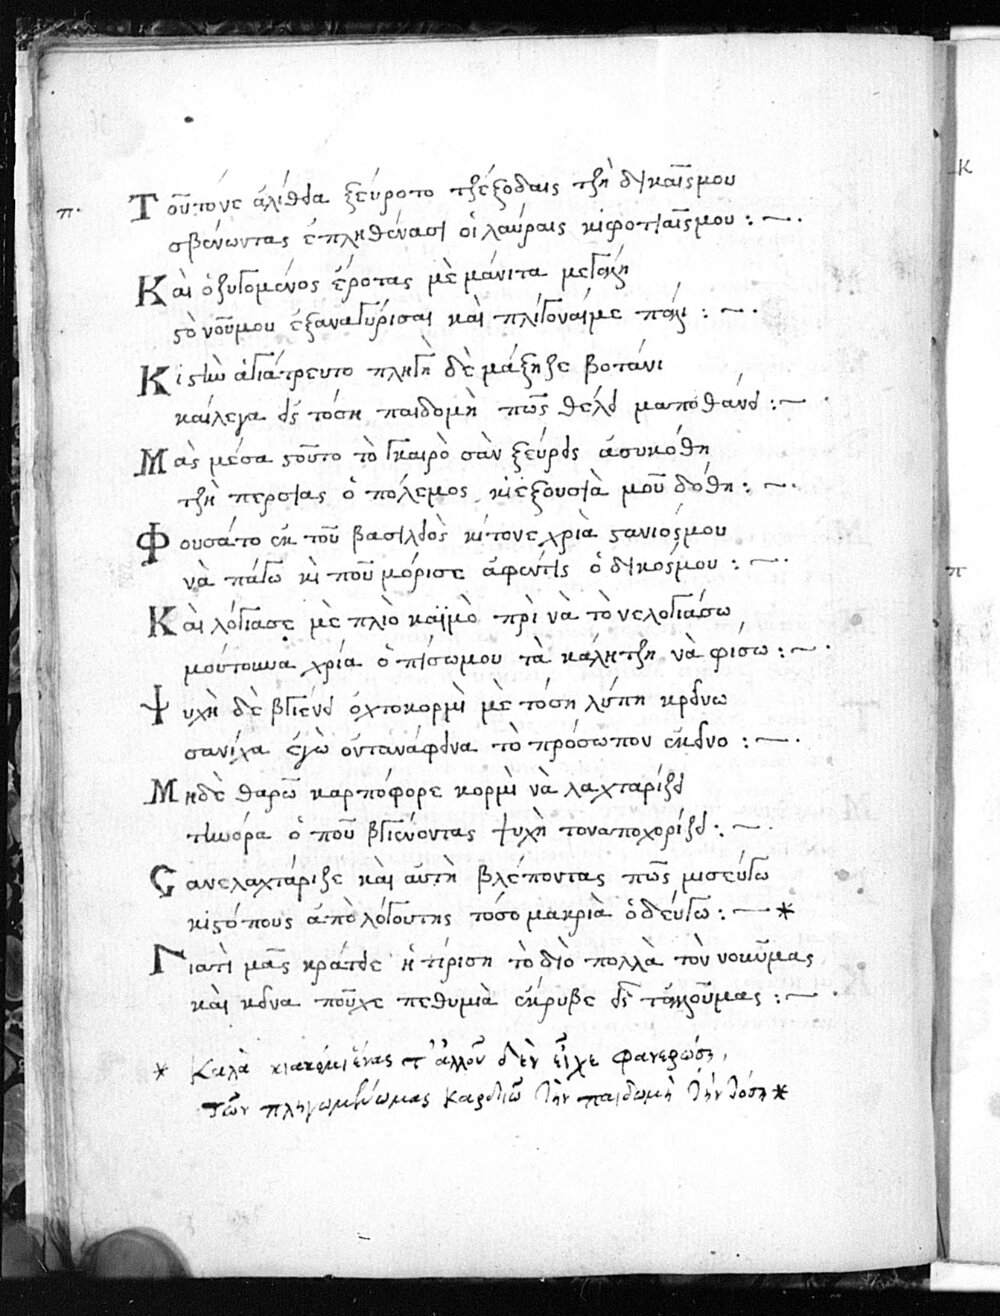 π.
Τοῦτονε ἀλίθϊα ξεύροτο τζέξοδαις τζὴ δικαῖςμου
σβένωντας ἐπληθένασι οἱ λαύραις κιφοτιαῖςμου : —.
Καὶ ὀξυγομένος ἔροτας μὲ μάνιτα μεγάλη
ςὸ νοῦμου ἐξαναγύρισαι καὶ πλίγοναίμε πάλι : —.
Κίςτὼ ἀγιάτρευτο πληγὴ δὲ μάξηξε βοτάνι
καίλεγα εἰς τόση παιδομὴ πῶς θέλει μαποθάνει : —.
Μὰς μέσα ςοῦτο τὸ γκαιρὸ σὰν ξεύρεις ἀσυκόθη
τζὴ περσίας ὁ πόλεμος κιεξουσιὰ μοῦ δόθη : —.
Φουσάτο ἐκ τοῦ βασιλειὸς κίτονε χριὰ ςανιόςμου
νὰ πάγω κι ποῦ μόρισε ἀφεντὶς ὁ δικόςμου : —.
Καὶ λόγιασε μὲ πλιὸ καϊμὸ πρὶ νὰ τὸ νελογιάσω
μούτοκνα χρία ὀπίσωμου τὰ κάλητζη νὰ φίσω : —.
Ψυχὴ δὲ βγιένει ὀχτοκορμὶ μὲ τόση λύπη κρεινω
σανίχα ἐγὼ ὀντανάφεινα τὸ πρόσωπον ἐκεινο : —.
Μηδὲ θαρῶ καρπόφορε κορμὶ νὰ λαχταρίξει
τιωόρα ὁ ποῦ βγιένοντας ψυχὴ τοναποχορίξει : —.
Σανελαχτάριξε καὶ αὐτὴ βλέποντας πῶς μισεύγω
κιςόπους ἀπὸ λόγουτης τόσο μακριὰ ὁδεύγω : — *
Γιατὶ μᾶς κράτειε ἡ κρίση τὸ διὸ πολλὰ τὸν νοκῦμας
καὶ κεινα ποῦχε πεθυμιὰ ἐκρυβε εἰς τἀλλοῦμας : —.
* Καλὰ κιακόμιἕνας τ' ἀλλοῦ δὲν εἶχε φανερώση,
τῶν πληγωμένωμας καρδιῶ τὴν παιδωμὴ τὴν τόση *
κ
π